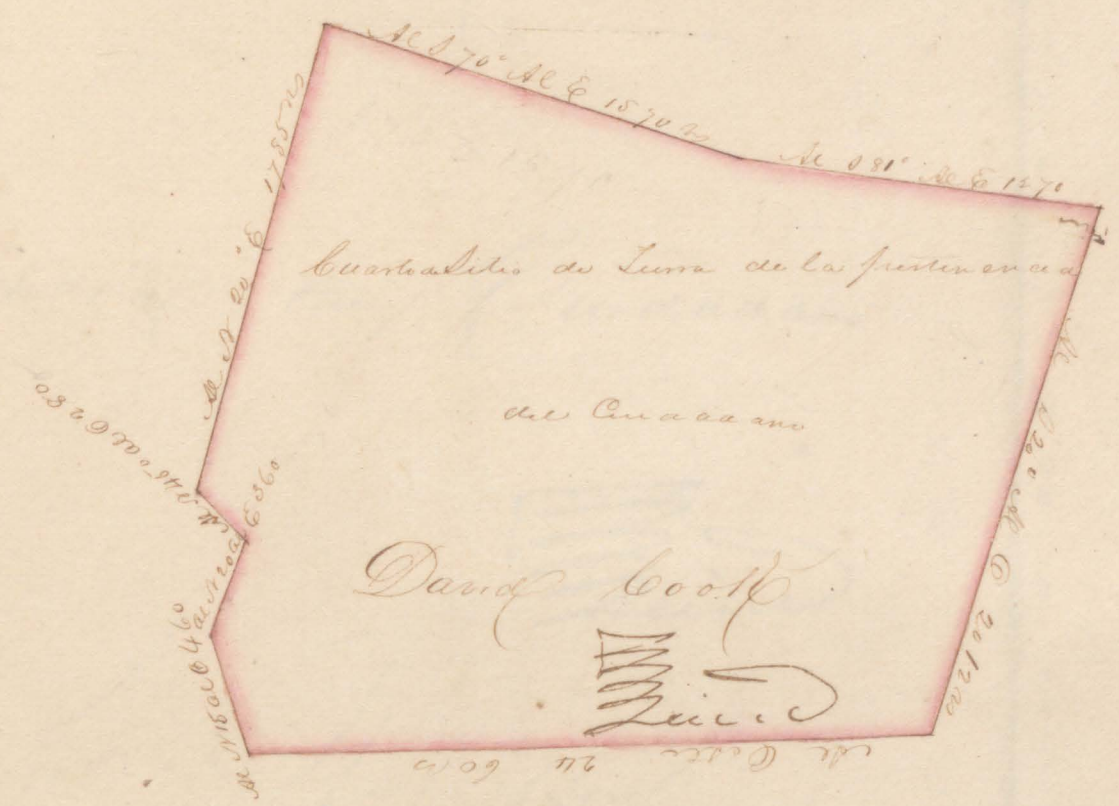 Al S 70° Al E 1570 vs
Al S 81° Al E 1270
vs
Al N 20° E 1785 vs
Cuarto de Sitio de Tierra de la pertenencia
del Ciudadano
David Cook
Al S 20° Al O 2012 vs
Al N 45° al O 280
Al N 20 al E 360
Al N 15 al O 460
Al Oeste 2460 vs